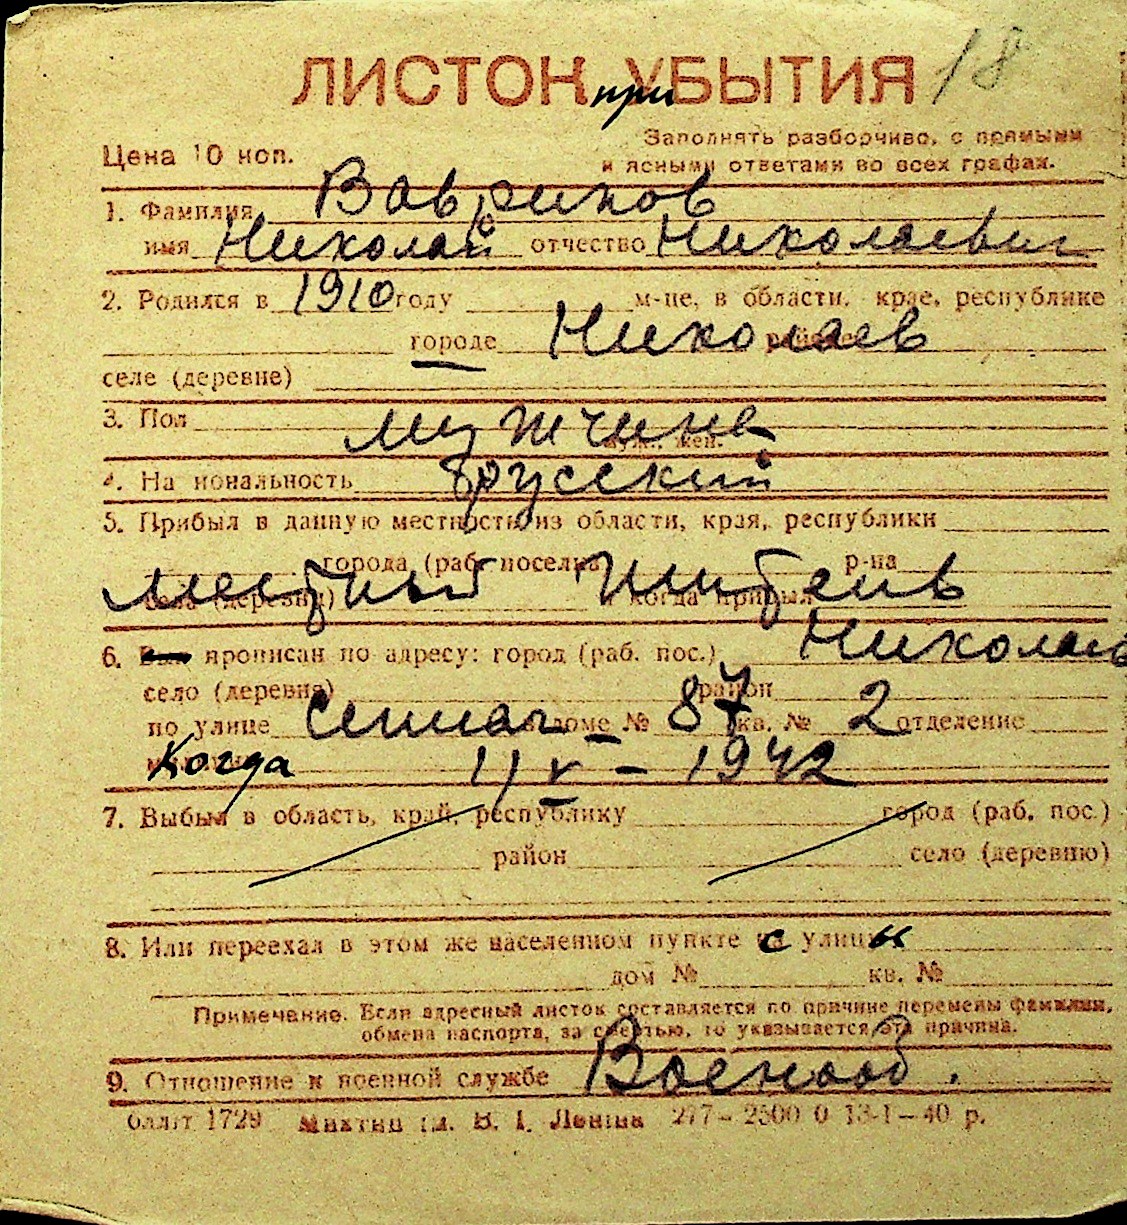 ЛИСТОК при УБЫТИЯ 18
Цена 10 коп.
Заполнять разборчиво, с прямыми
и ясными ответами во всех графах.
1. Фамилия Вавринов
имя Николай отчество Николаевич
2. Родился в 1910 году м-це, в области, крае, республике
городе Николаев районе
селе (деревне)
3. Пол мужчина
муж., жен.
4. Национальность русский
5. Прибыл в данную местность из области, края, республики
города (раб. поселка) р-на
села (деревни) местный и когда прибыл
6. прописан по адресу: город (раб. пос.) Николаев
село (деревня) район
по улице доме № 87 кв. № 2 отделение
Когда 11 V - 1942
7. Выбыл в область, край, республику город (раб. пос.)
район село (деревню)
8. Или переехал в этом же населенном пункте с улицы
дом № кв. №
Примечание. Если адресный листок составляется по причине перемены фамилии,
обмена паспорта, за смертью, то указывается эта причина.
9. Отношение к военной службе Военнооб.
1729 им. В. І. Леніна 277-2500 0 13-I-40 р.